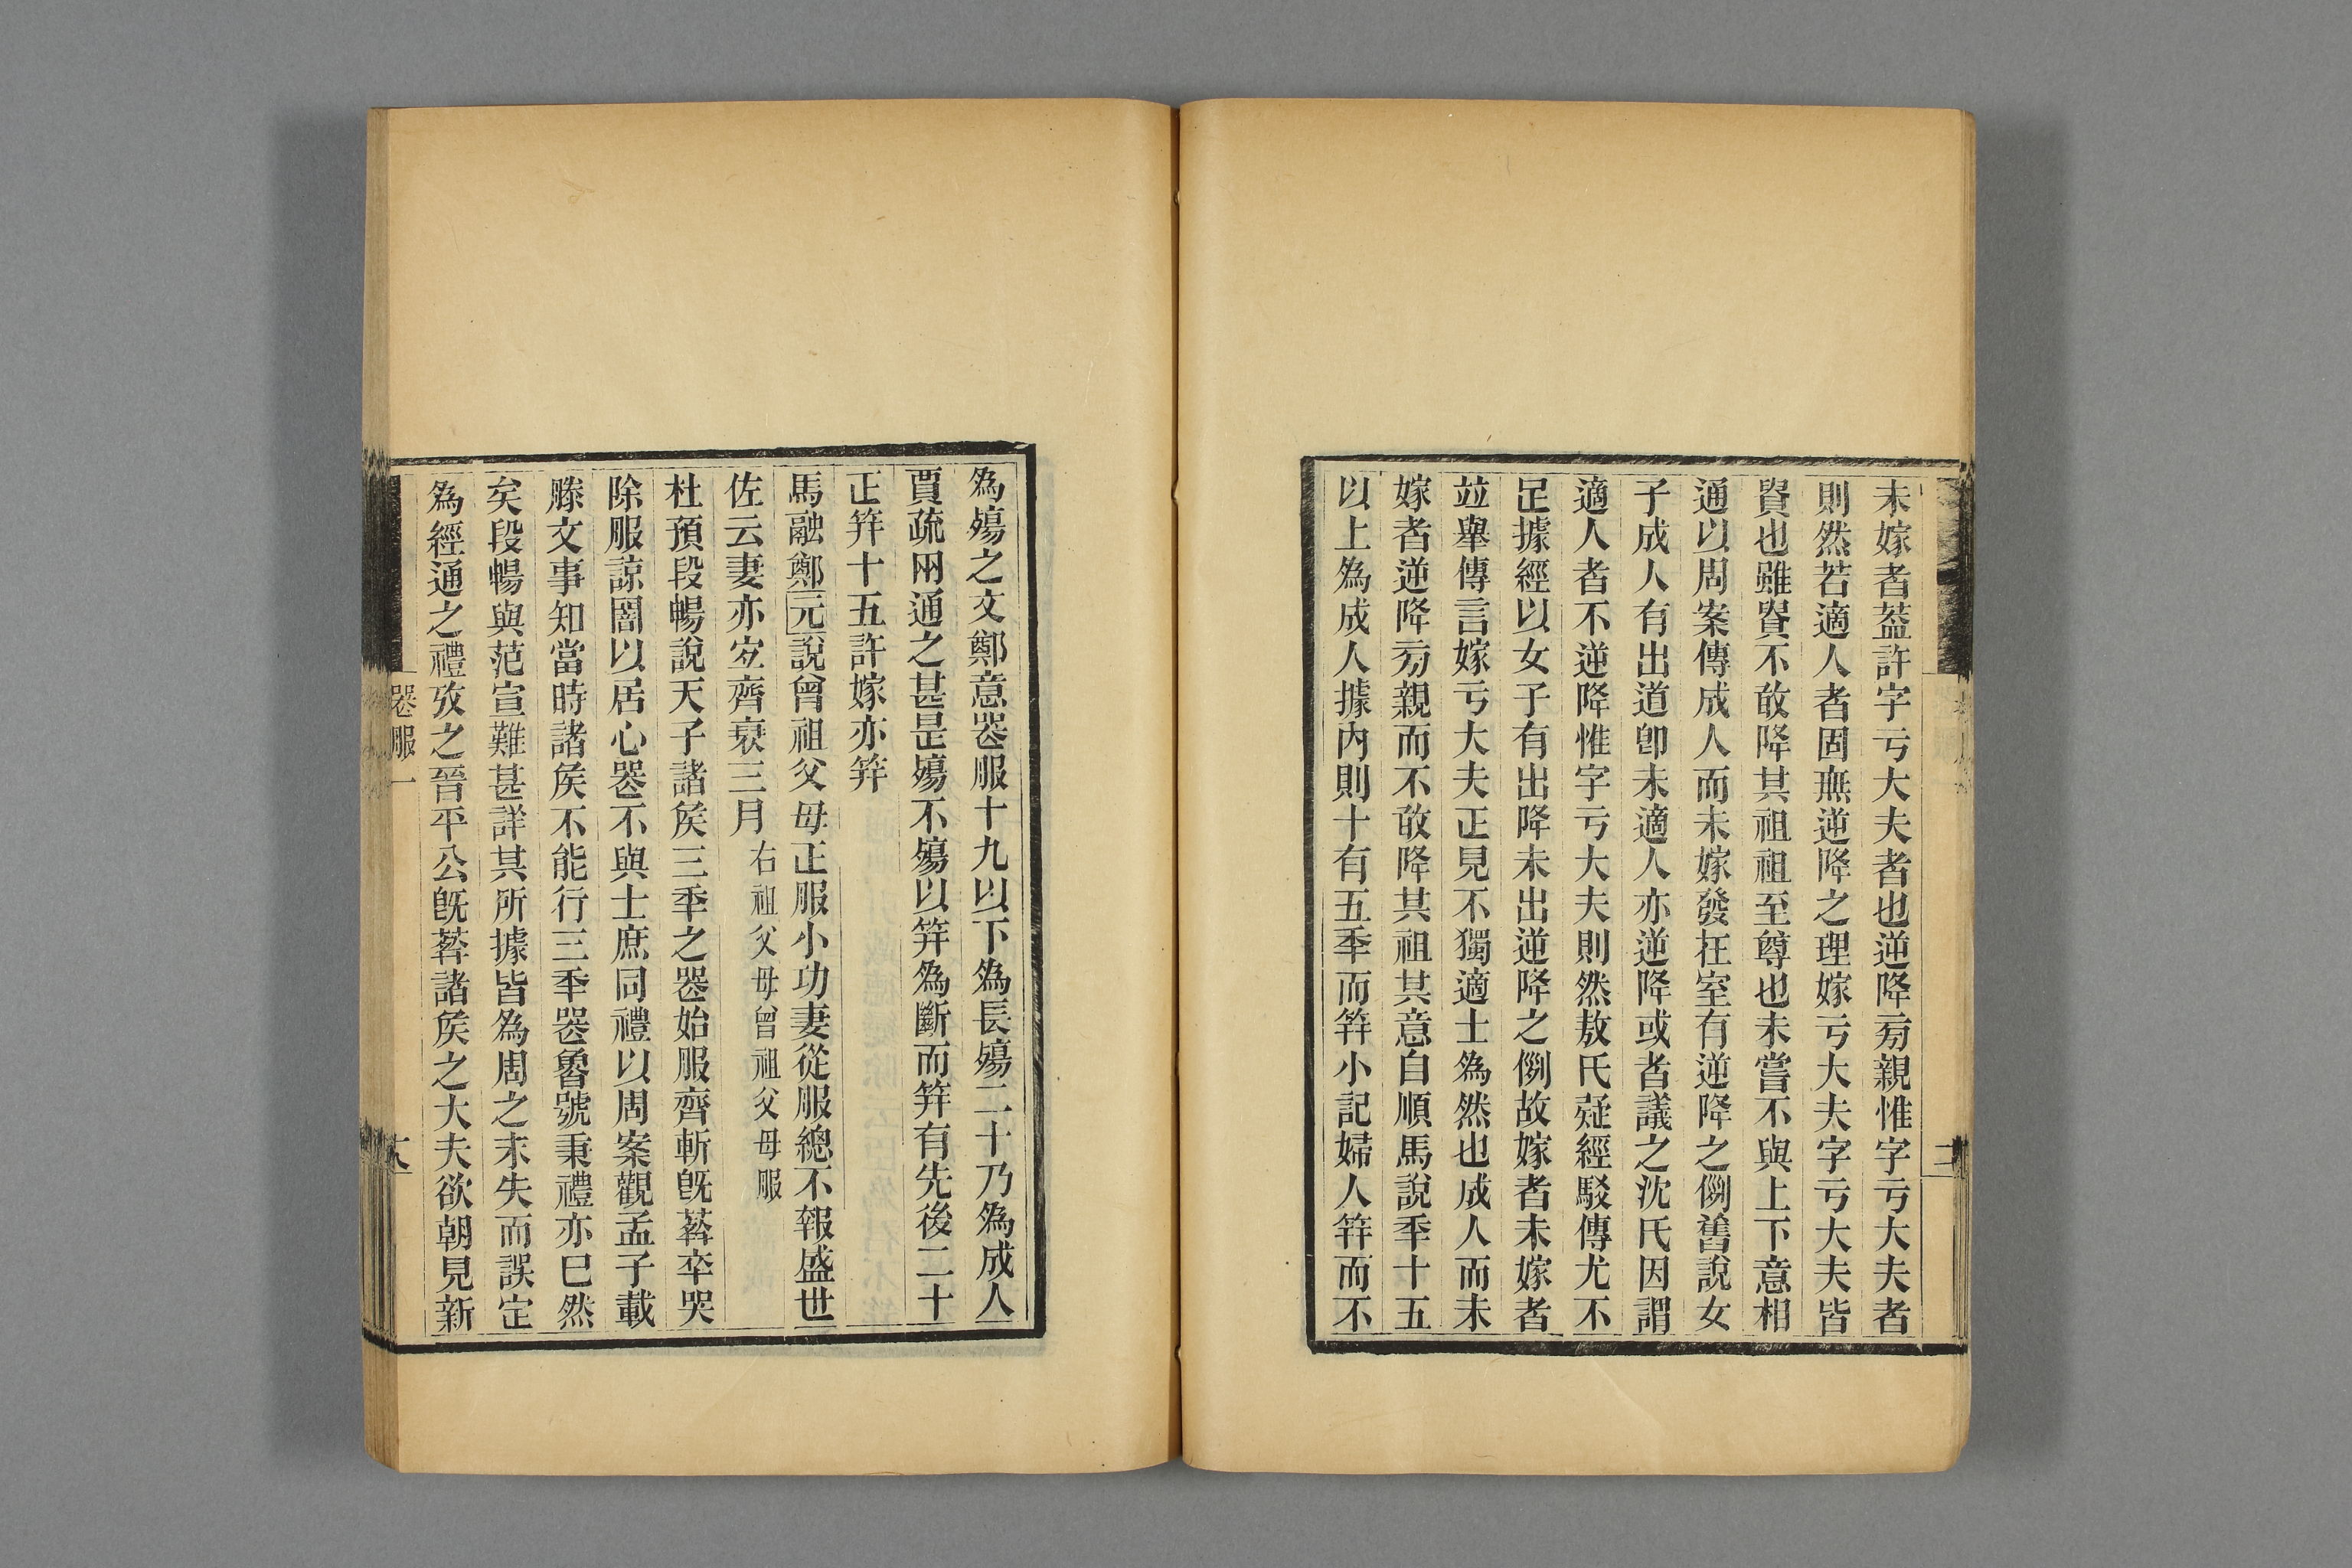 未嫁者葢許字亏大夫者也逆降㫄親惟字亏大夫者
則然若適人者固無逆降之理嫁亏大夫字亏大夫皆
貴也雖貴不敢降其祖祖至尊也未嘗不與上下意相
通以周案傳成人而未嫁發在室有逆降之例舊說女
子成人有出道卽未適人亦逆降或者議之沈氏因謂
適人者不逆降惟字亏大夫則然敖氏疑經駁傳尤不
足據經以女子有出降未出逆降之例故嫁者未嫁者
竝舉傳言嫁亏大夫正見不獨適士為然也成人而未
嫁者逆降㫄親而不敢降其祖其意自順馬說秊十五
以上為成人據内則十有五秊而笄小記婦人笄而不
為殤之文鄭意喪服十九以下為長殤二十乃為成人
賈疏兩通之甚是殤不殤以笄為斷而笄有先後二十
正笄十五許嫁亦笄
馬融鄭元說曾祖父母正服小功妻從服緦不報盛世
佐云妻亦宜齊衰三月右祖父母曾祖父母服
杜預段暢說天子諸矦三秊之喪始服齊斬旣葬卒哭
除服諒闇以居心喪不與士庶同禮以周案觀孟子載
滕文事知當時諸矦不能行三秊喪魯號秉禮亦巳然
矣段暢與范宣難甚詳其所據皆為周之末失而誤定
為經通之禮攷之晉平公旣葬諸矦之大夫欲朝見新
喪服一